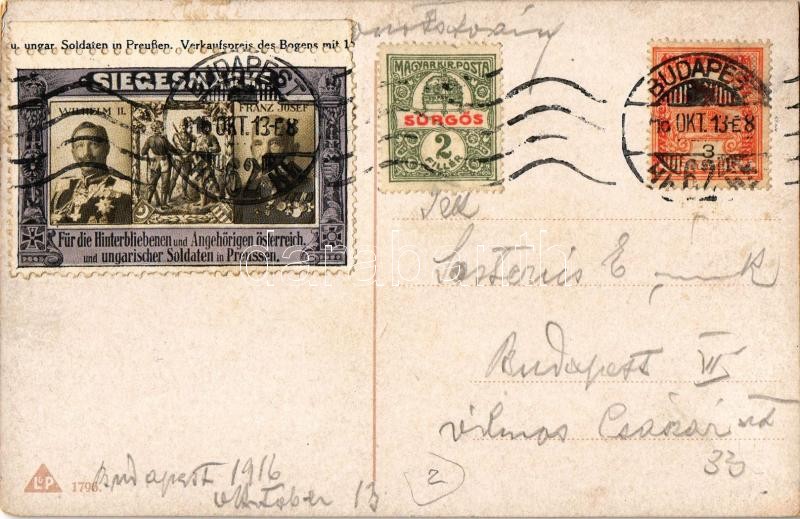 u. ungar. Soldaten in Preußen. Verkaufspreis des Bogens mit 15
SIEGESMARKE
WILHELM II.
FRANZ JOSEF
Für die Hinterbliebenen und Angehörigen österreich.
und ungarischer Soldaten in Preussen.
BUDAPEST
916 OKT. 13-E8
62
MAGYAR KIR. POSTA
SÜRGŐS
2
FILLÉR
BUDAPEST
16 OKT. 13-E8
3
62
darabanth
Budapest VII
Vilmos Császár út
33
2
L&P 1796
Budapest 1916
Oktober 13